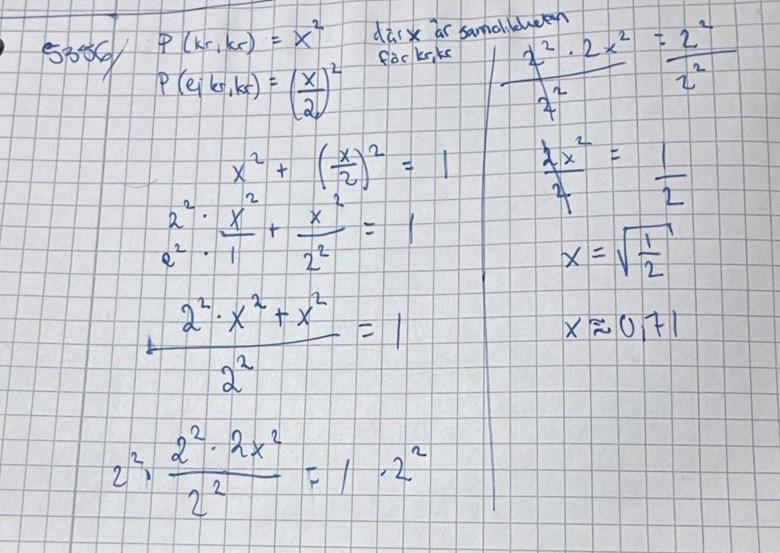 5356/
P(kr, kr) = x²
där x är sannolikheten
för kr, kr
P(ej kr, kr) = (x/2)²
x² + (x/2)² = 1
2²/2² · x²/1 + x²/2² = 1
(2² · x² + x²)/2² = 1
2² · (2² · 2x²)/2² = 1 · 2²
(2² · 2x²)/2² = 2²/2²
2x²/2 = 1/2
x = √(1/2)
x ≈ 0,71